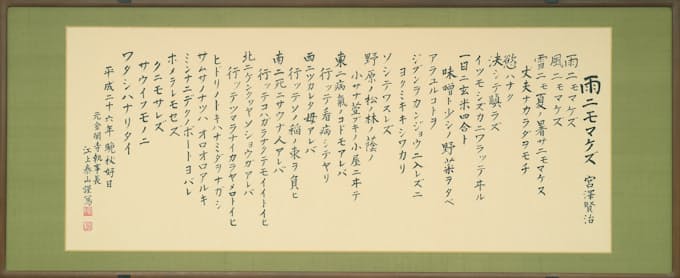 雨ニモマケズ 宮澤賢治
雨ニモマケズ
風ニモマケズ
雪ニモ夏ノ暑サニモマケヌ
丈夫ナカラダヲモチ
慾ハナク
決シテ瞋ラズ
イツモシズカニワラッテヰル
一日ニ玄米四合ト
味噌ト少シノ野菜ヲタベ
アラユルコトヲ
ジブンヲカンジョウニ入レズニ
ヨクミキキシワカリ
ソシテワスレズ
野原ノ松ノ林ノ蔭ノ
小サナ萱ブキノ小屋ニヰテ
東ニ病気ノコドモアレバ
行ッテ看病シテヤリ
西ニツカレタ母アレバ
行ッテソノ稲ノ束ヲ負ヒ
南ニ死ニサウナ人アレバ
行ッテコハガラナクテモイイトイヒ
北ニケンクヮヤソショウガアレバ
行ッテツマラナイカラヤメロトイヒ
ヒドリノトキハナミダヲナガシ
サムサノナツハオロオロアルキ
ミンナニデクノボートヨバレ
ホメラレモセズ
クニモサレズ
サウイフモノニ
ワタシハナリタイ
平成二十六年 晩秋好日
元金閣寺執事長
江上泰山謹写